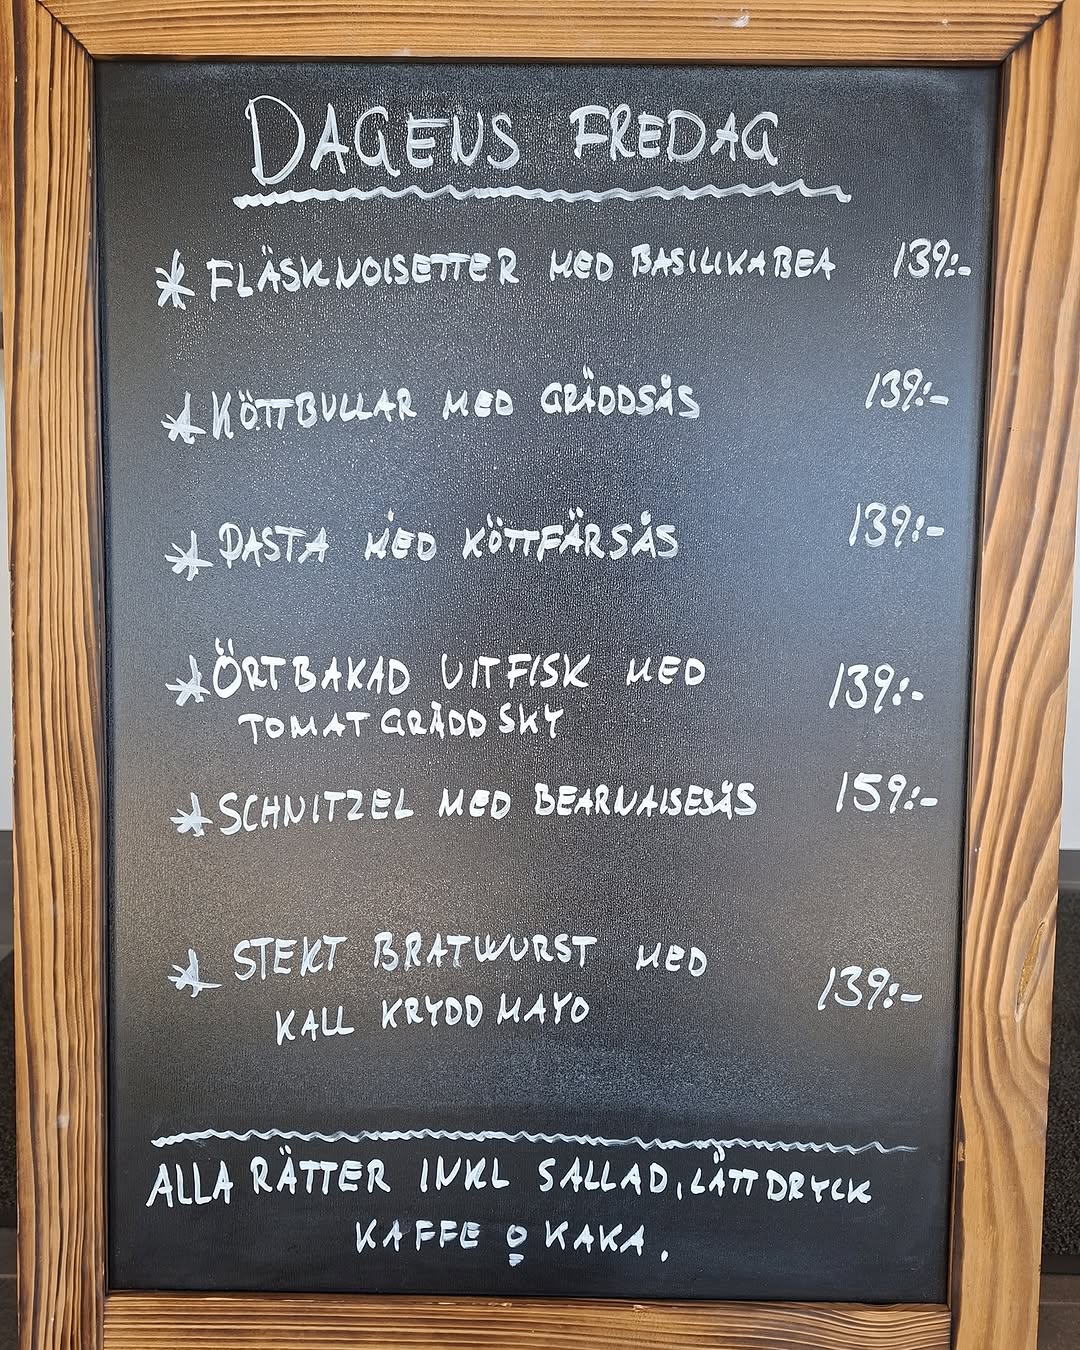 DAGENS FREDAG
* FLÄSKNOISETTER MED BASILIKABEA 139:-
* KÖTTBULLAR MED GRÄDDSÅS 139:-
* PASTA MED KÖTTFÄRSÅS 139:-
* ÖRTBAKAD VITFISK MED 139:-
TOMATGRÄDD SKY
* SCHNITZEL MED BEARNAISESÅS 159:-
* STEKT BRATWURST MED 139:-
KALL KRYDDMAYO
ALLA RÄTTER INKL SALLAD, LÄTTDRYCK
KAFFE O KAKA.